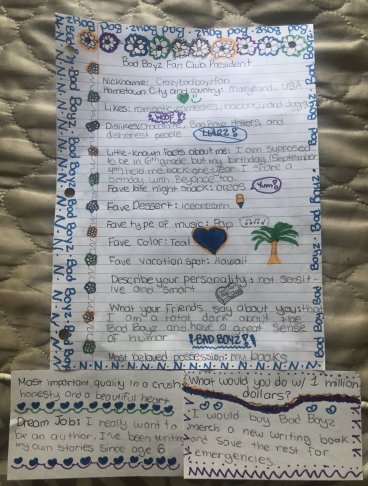 Bad Boyz Bad Boyz Bad Boyz Bad Boyz
Bad Boyz Fan Club President
Nickname: Crazybadboyzfan
Hometown City and country: Maryland, USA
Likes: romantic comedies, and dogs
WOOF!
Dislikes: chocolate, Bad Boyz Haters, and
dishonest people LIARZ!
Little-Known Facts about me: I am supposed
to be in 6th grade but my birthday (September
4th) held me back one year. I share a
birthday with Beyonce too
Fave late night snack: oreos Yum!
Fave Dessert: icecream
Fave type of music: Pop
Fave Color: Teal
Fave vacation spot: Hawaii
Describe your personality: not sensit-
ive and smart
What your friends say about you: that
I am a total dork about the
Bad Boyz and have a great sense
of humor ! BAD BOYZ !
Most beloved possession: my books
Most important quality in a crush:
honesty and a beautiful heart
Dream Job: I really want to
be an author. I've been writing
my own stories since age 6
What would you do w/ 1 million
dollars?
I would buy Bad Boyz
merch a new writing book
and save the rest for
emergencies.